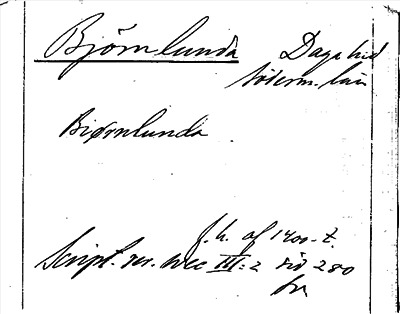 Björnlunda Daga hd
Söderm. län
Biørnlunda
f. h. af 1400-t.
Script. rer. svec III:2 sid 280